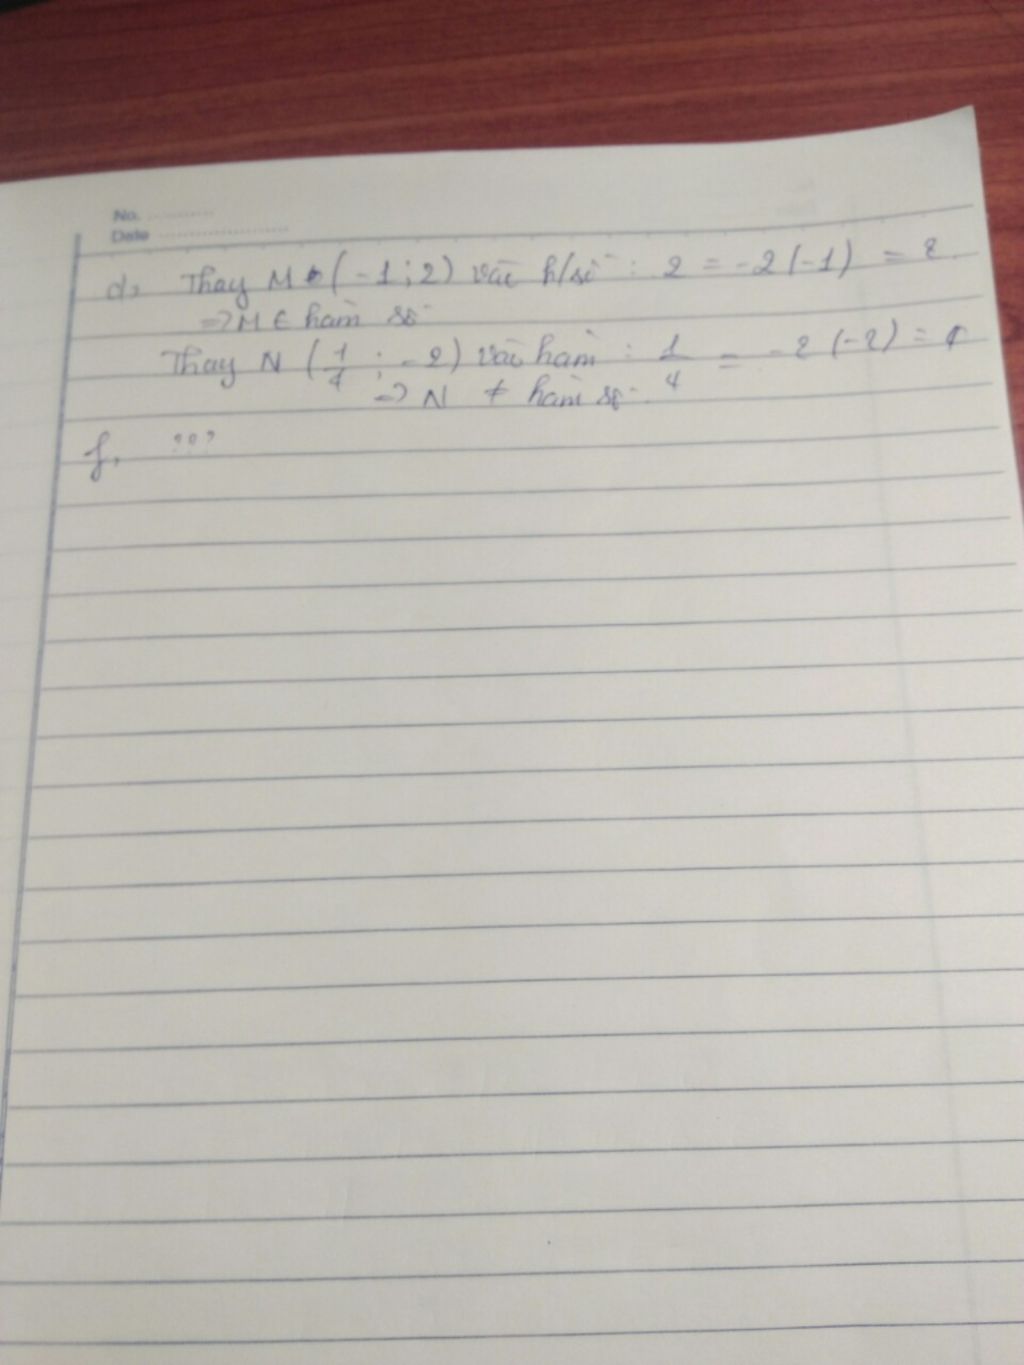 No. ............
Date ......................
d, Thay M (-1 ; 2) vào h/số : 2 = -2(-1) = 2.
=> M ∈ hàm số
Thay N (1/4 ; -2) vào hàm : 1/4 = -2 (-2) = 4
=> N ≠ hàm số.
f, ???